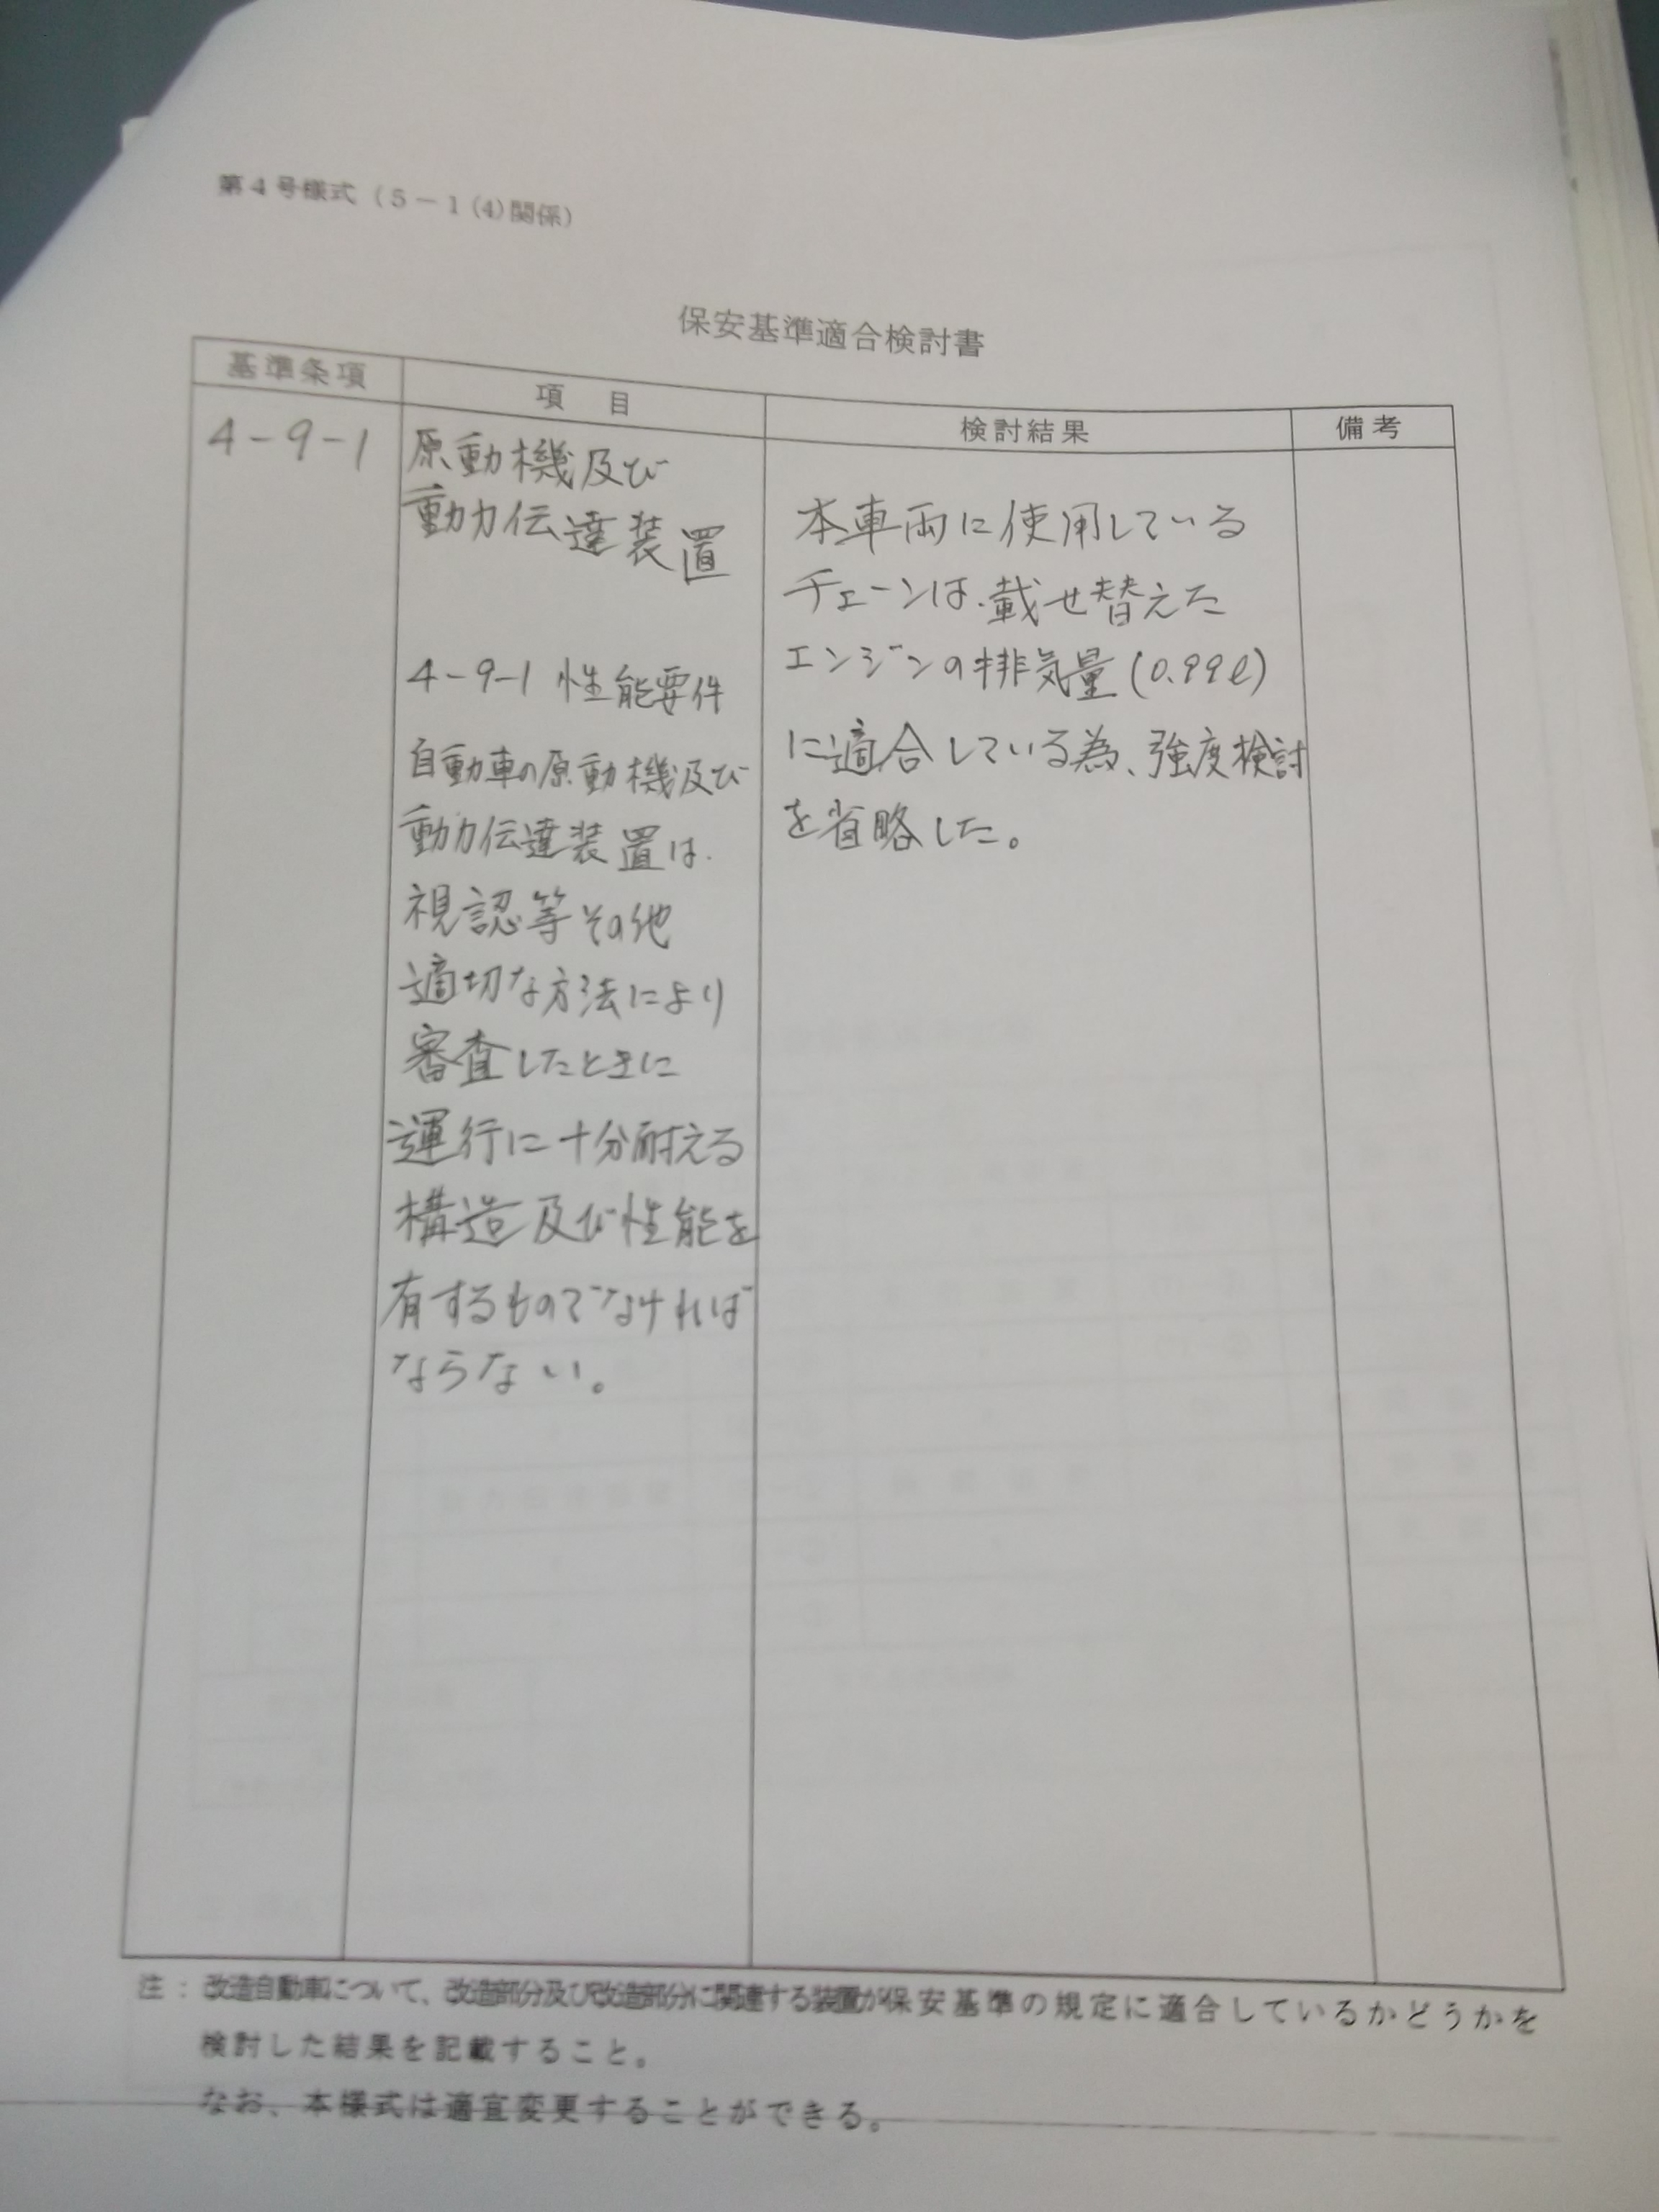 第4号様式(5-1(4)関係)
保安基準適合検討書
基準条項
項 目
検討結果
備考
4-9-1
原動機及び
動力伝達装置
4-9-1 性能要件
自動車の原動機及び
動力伝達装置は、
視認等その他
適切な方法により
審査したときに
運行に十分耐える
構造及び性能を
有するものでなければ
ならない。
本車両に使用している
チェーンは、載せ替えた
エンジンの排気量(0.99ℓ)
に適合している為、強度検討
を省略した。
注：改造自動車について、改造部分及び改造部分に関連する装置が保安基準の規定に適合しているかどうかを
検討した結果を記載すること。
なお、本様式は適宜変更することができる。